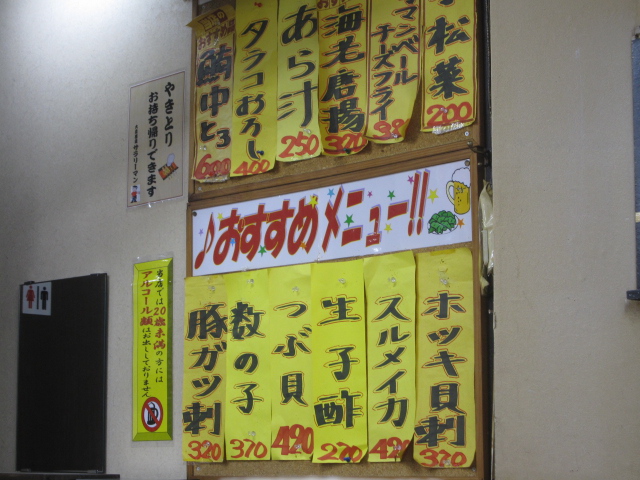 小松菜
200
マンベール
チーズフライ
海老唐揚
320
あら汁
250
タラコおろし
400
鮪中とろ
600
やきとり
お持ち帰りできます
♪おすすめメニュー!!
ホッキ貝刺
370
スルメイカ
420
生子酢
270
つぶ貝
420
数の子
370
豚ガツ刺
320
当店では20歳未満の方には
アルコール類はお出ししておりません